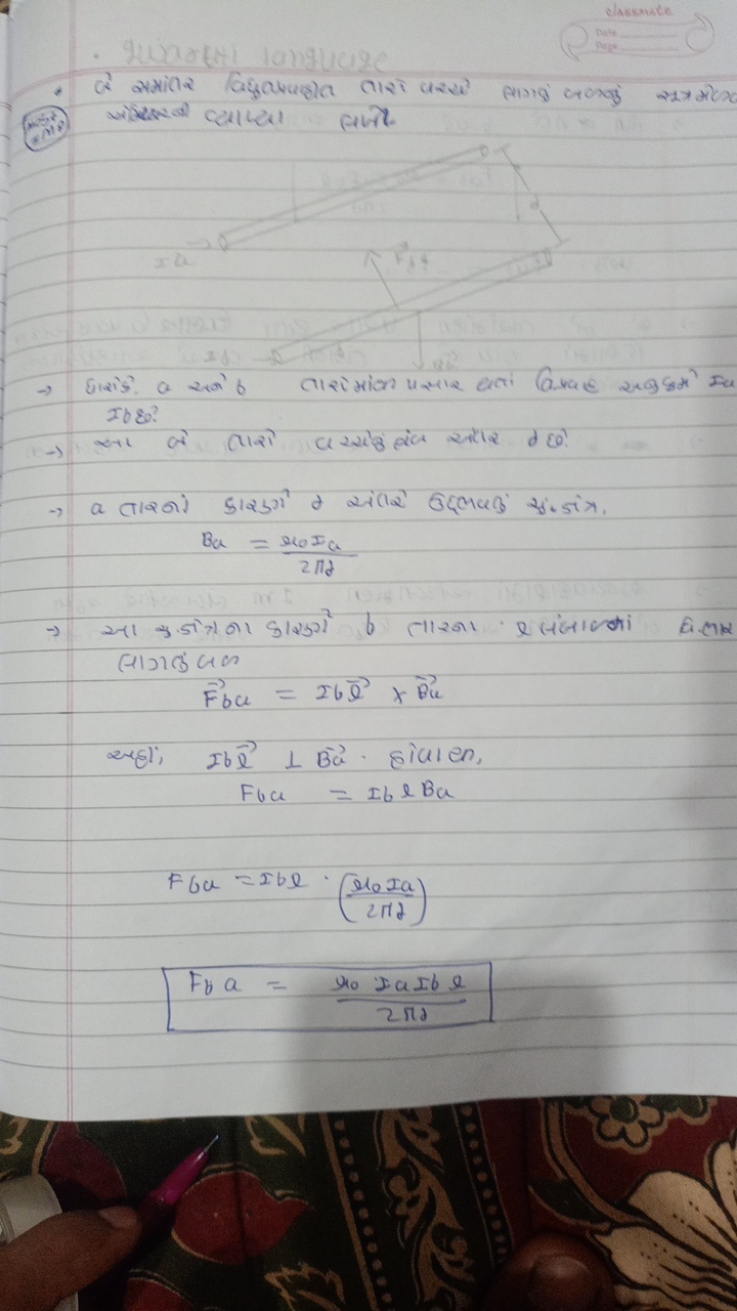 classmate
Date
Page
• બે સમાંતર વિદ્યુતપ્રવાહીત તારો વચ્ચે લાગતું બળનું સૂત્ર મેળવ
એમ્પિયરની વ્યાખ્યા લખો.
d
Ia
Ba
→ ધારોકે, a અને b તારોમાંથી પસાર થતાં વિપ્રવાહ અનુક્રમે Ia
Ib છે.
→ આ બે તારો વચ્ચેનું લંબ અંતર d છે.
→ a તારના કારણે d અંતરે ઉદ્દભવતું ચું.ક્ષેત્ર,
Ba = μ0Ia
2πd
→ આ ચુ.ક્ષેત્રના કારણે b તારના l લંબાઈના
લાગતું બળ
F⃗ba = Ib l⃗ × B⃗a
અહીં, Ib l⃗ ⊥ B⃗a. હોવાથી,
Fba = Ib l Ba
Fba = Ib l · (μ0Ia
2πd)
Fba = μ0 Ia Ib l
2πd